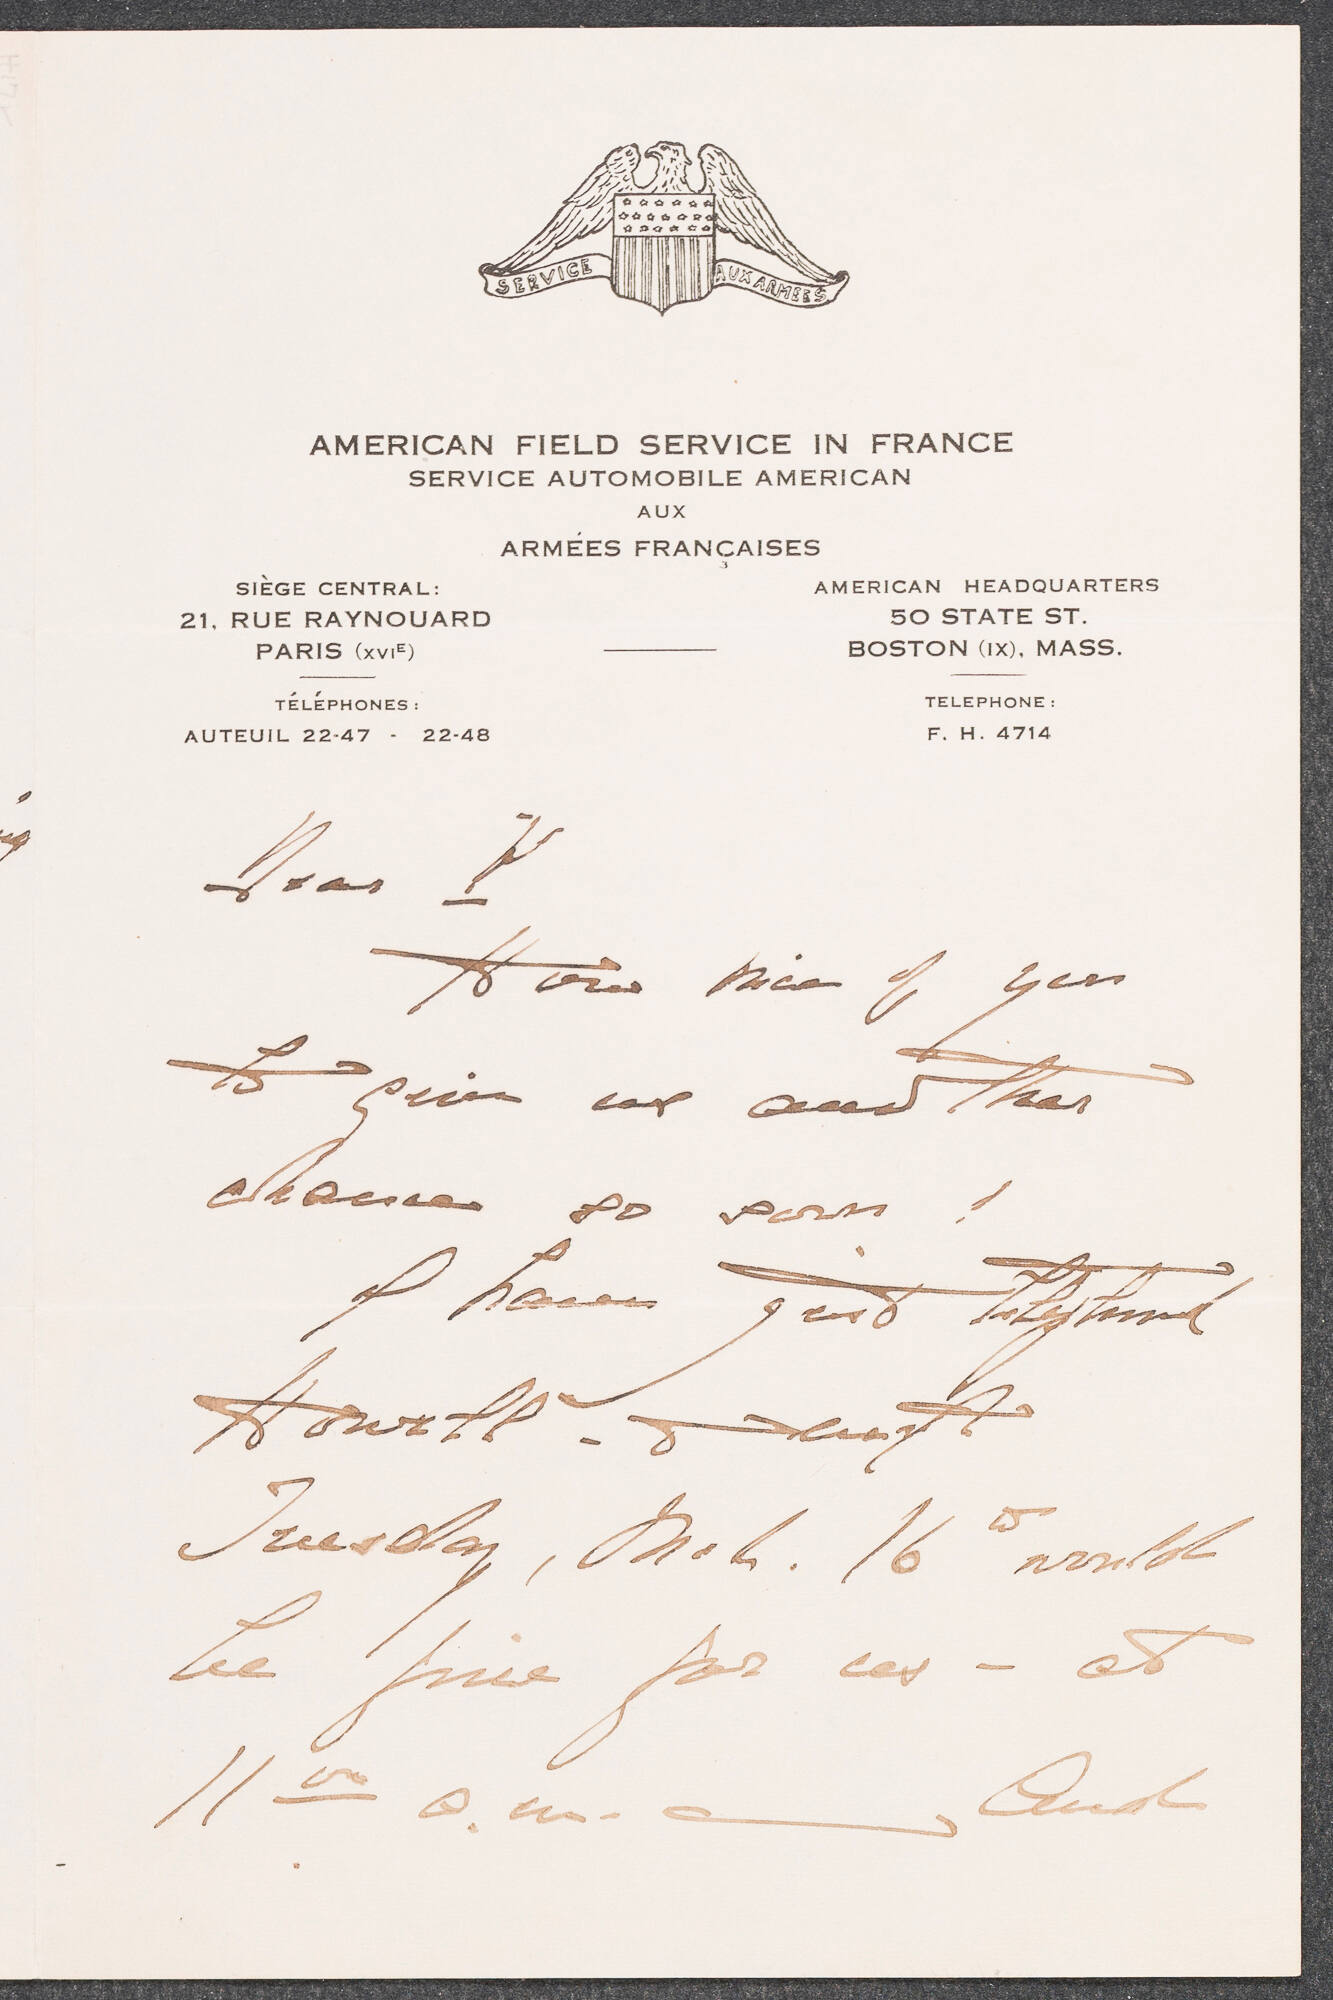 SERVICE AUX ARMEES
AMERICAN FIELD SERVICE IN FRANCE
SERVICE AUTOMOBILE AMERICAN
AUX
ARMÉES FRANÇAISES
SIÈGE CENTRAL:
21, RUE RAYNOUARD
PARIS (XVIE)
TÉLÉPHONES:
AUTEUIL 22-47 - 22-48
AMERICAN HEADQUARTERS
50 STATE ST.
BOSTON (IX), MASS.
TELEPHONE:
F. H. 4714
Dear
How nice of you
to give us another
chance so soon!
I have just telephoned
Howell -
Tuesday, Mch. 16th would
be fine for us - at
11 a.m. And